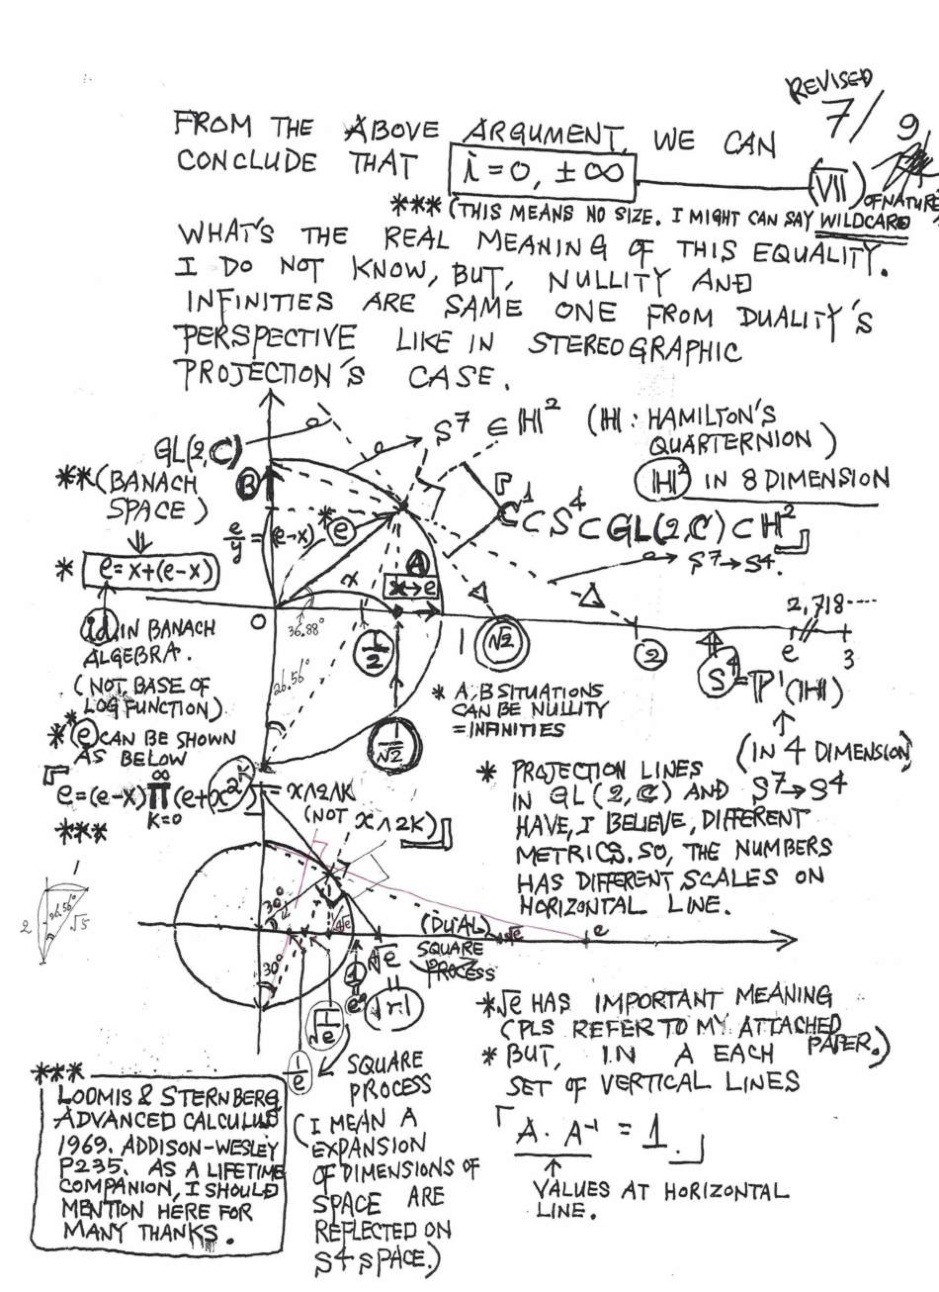 REVISED
7/9
FROM THE ABOVE ARGUMENT, WE CAN
CONCLUDE THAT i=0, ±∞ (VII)
***(THIS MEANS NO SIZE. I MIGHT CAN SAY WILDCARD OF NATURE
WHAT'S THE REAL MEANING OF THIS EQUALITY.
I DO NOT KNOW, BUT, NULLITY AND
INFINITIES ARE SAME ONE FROM DUALITY'S
PERSPECTIVE LIKE IN STEREOGRAPHIC
PROJECTION'S CASE.
S⁷ ∈ ℍ² (ℍ: HAMILTON'S
QUARTERNION)
ℍ² IN 8 DIMENSION
GL(2,C)
**(BANACH
SPACE)
B
e/y = (e-x)
*e
「C¹⊂S⁴⊂GL(2,C)⊂H²」
S⁷→S⁴.
* e=x+(e-x)
x
A
x→e
O
36.88°
1/2
1
√2
2
2,718····
e
3
S⁴=ℙ¹(ℍ)
(IN 4 DIMENSION)
id.IN BANACH
ALGEBRA.
(NOT BASE OF
LOG FUNCTION)
26.56°
1/√2
* A,B SITUATIONS
CAN BE NULLITY
=INFINITIES
**e CAN BE SHOWN
AS BELOW
「e=(e-x)∏(e+x^2^K) = x∧2∧K
∞
K=0
(NOT x∧2K)」
***
* PROJECTION LINES
IN GL(2,C) AND S⁷→S⁴
HAVE, I BELIEVE, DIFFERENT
METRICS. SO, THE NUMBERS
HAS DIFFERENT SCALES ON
HORIZONTAL LINE.
2
26.56°
√5
30°
30°
(DUAL)
SQUARE
PROCESS
√e
e
√e
1
e⁰
|r|
1/√e
1/e
SQUARE
PROCESS
(I MEAN A
EXPANSION
OF DIMENSIONS OF
SPACE ARE
REFLECTED ON
S4 SPACE.)
*√e HAS IMPORTANT MEANING
(PLS REFER TO MY ATTACHED
PAPER.)
* BUT, IN A EACH
SET OF VERTICAL LINES
「A·A⁻¹ = 1.」
VALUES AT HORIZONTAL
LINE.
***
LOOMIS & STERNBERG
ADVANCED CALCULUS
1969. ADDISON-WESLEY
P235. AS A LIFETIME
COMPANION, I SHOULD
MENTION HERE FOR
MANY THANKS.